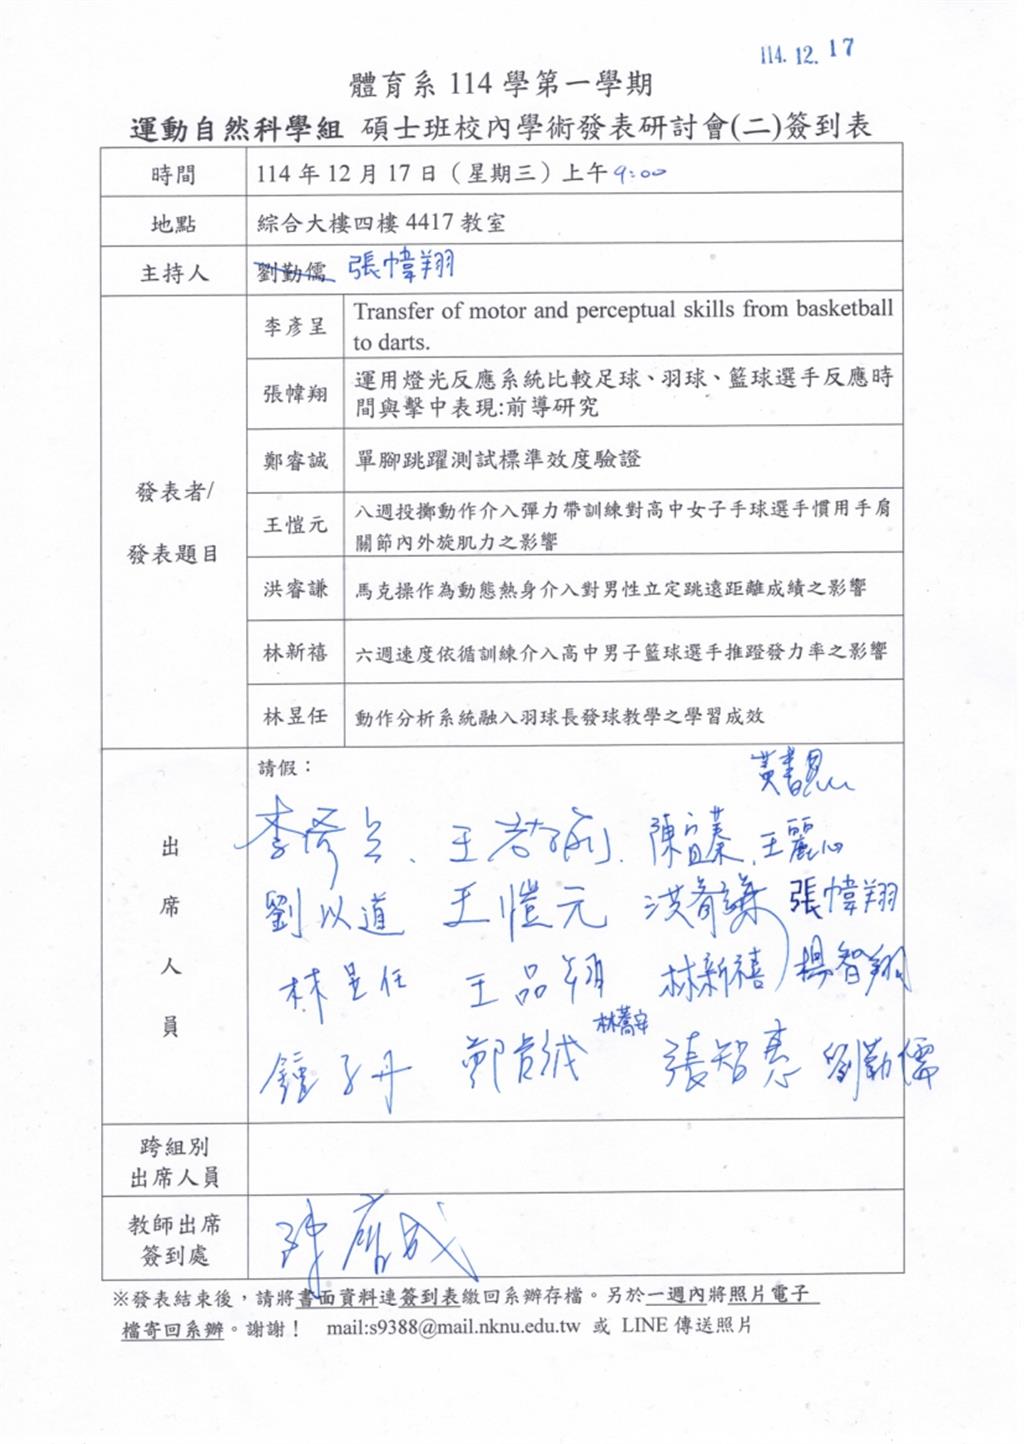 114.12.17
體育系 114 學第一學期
運動自然科學組 碩士班校內學術發表研討會(二)簽到表
時間 114 年 12 月 17 日（星期三）上午 9:00
地點 綜合大樓四樓 4417 教室
主持人 劉勤儒 張幃翔
發表者/
發表題目
李彥呈 Transfer of motor and perceptual skills from basketball
to darts.
張幃翔 運用燈光反應系統比較足球、羽球、籃球選手反應時
間與擊中表現:前導研究
鄭睿誠 單腳跳躍測試標準效度驗證
王愷元 八週投擲動作介入彈力帶訓練對高中女子手球選手慣用手肩
關節內外旋肌力之影響
洪睿謙 馬克操作為動態熱身介入對男性立定跳遠距離成績之影響
林新禧 六週速度依循訓練介入高中男子籃球選手推蹬發力率之影響
林昱任 動作分析系統融入羽球長發球教學之學習成效
出席人員
請假：
黃書恩
李彥呈、王、陳、王麗心
劉以道 王愷元 洪睿謙 張幃翔
林昱任 王品翔 林新禧 楊智翔
林喬安
鐘子丹 鄭睿誠 張智惠 劉勤儒
跨組別
出席人員
教師出席
簽到處
陳 成
※發表結束後，請將書面資料連簽到表繳回系辦存檔。另於一週內將照片電子
檔寄回系辦。謝謝！ mail:s9388@mail.nknu.edu.tw 或 LINE 傳送照片